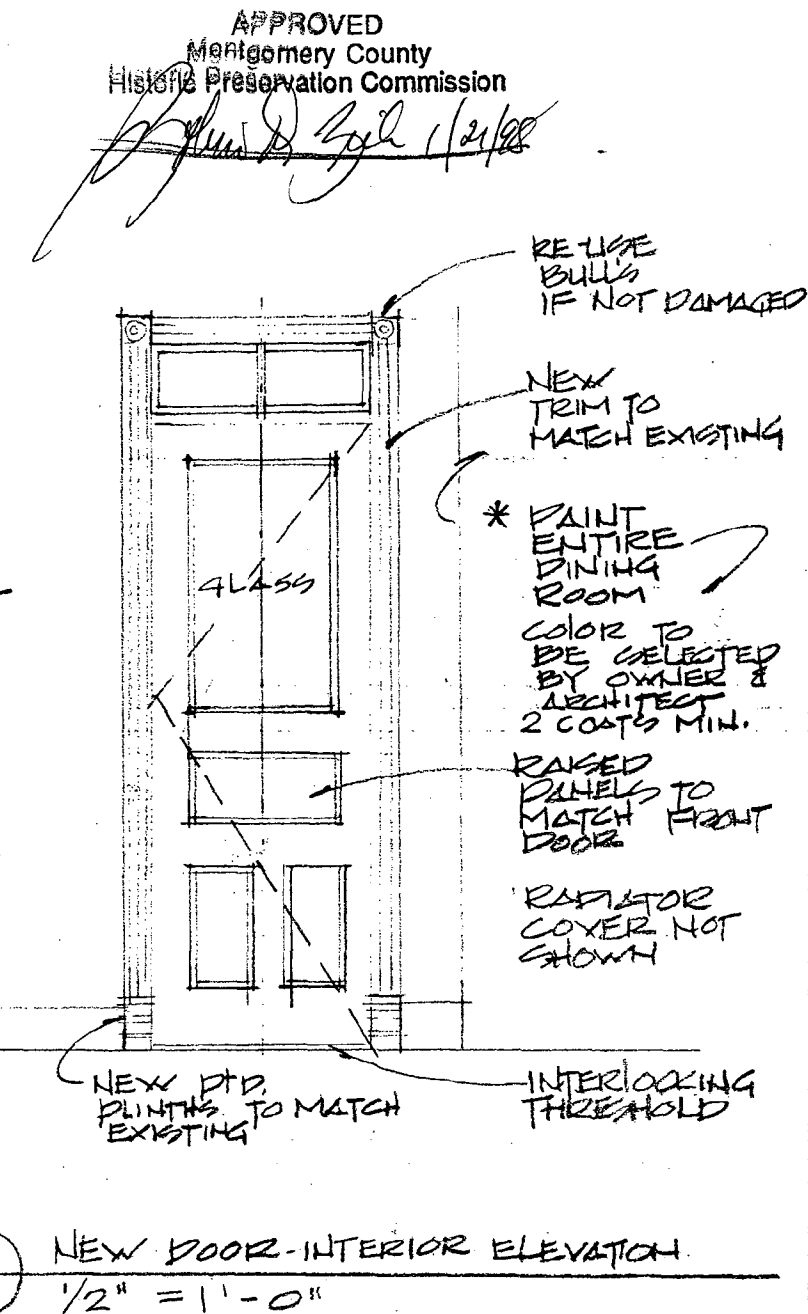 APPROVED
Montgomery County
Historic Preservation Commission
1/21/98
RE-USE
BULL'S
IF NOT DAMAGED
NEW
TRIM TO
MATCH EXISTING
* PAINT
ENTIRE
DINING
ROOM
COLOR TO
BE SELECTED
BY OWNER &
ARCHITECT
2 COATS MIN.
GLASS
RAISED
PANELS TO
MATCH FRONT
DOOR
RADIATOR
COVER NOT
SHOWN
NEW PTD.
PLINTHS TO MATCH
EXISTING
INTERLOCKING
THRESHOLD
NEW DOOR-INTERIOR ELEVATION
1/2" = 1'-0"